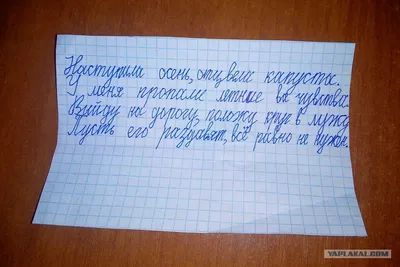 Наступила осень, отцвела капуста.
У меня пропали летние чувства.
Выйду на дорогу, положу в лужу
Пусть его раздавят, всё равно не нужен.
YAPLAKAL.COM